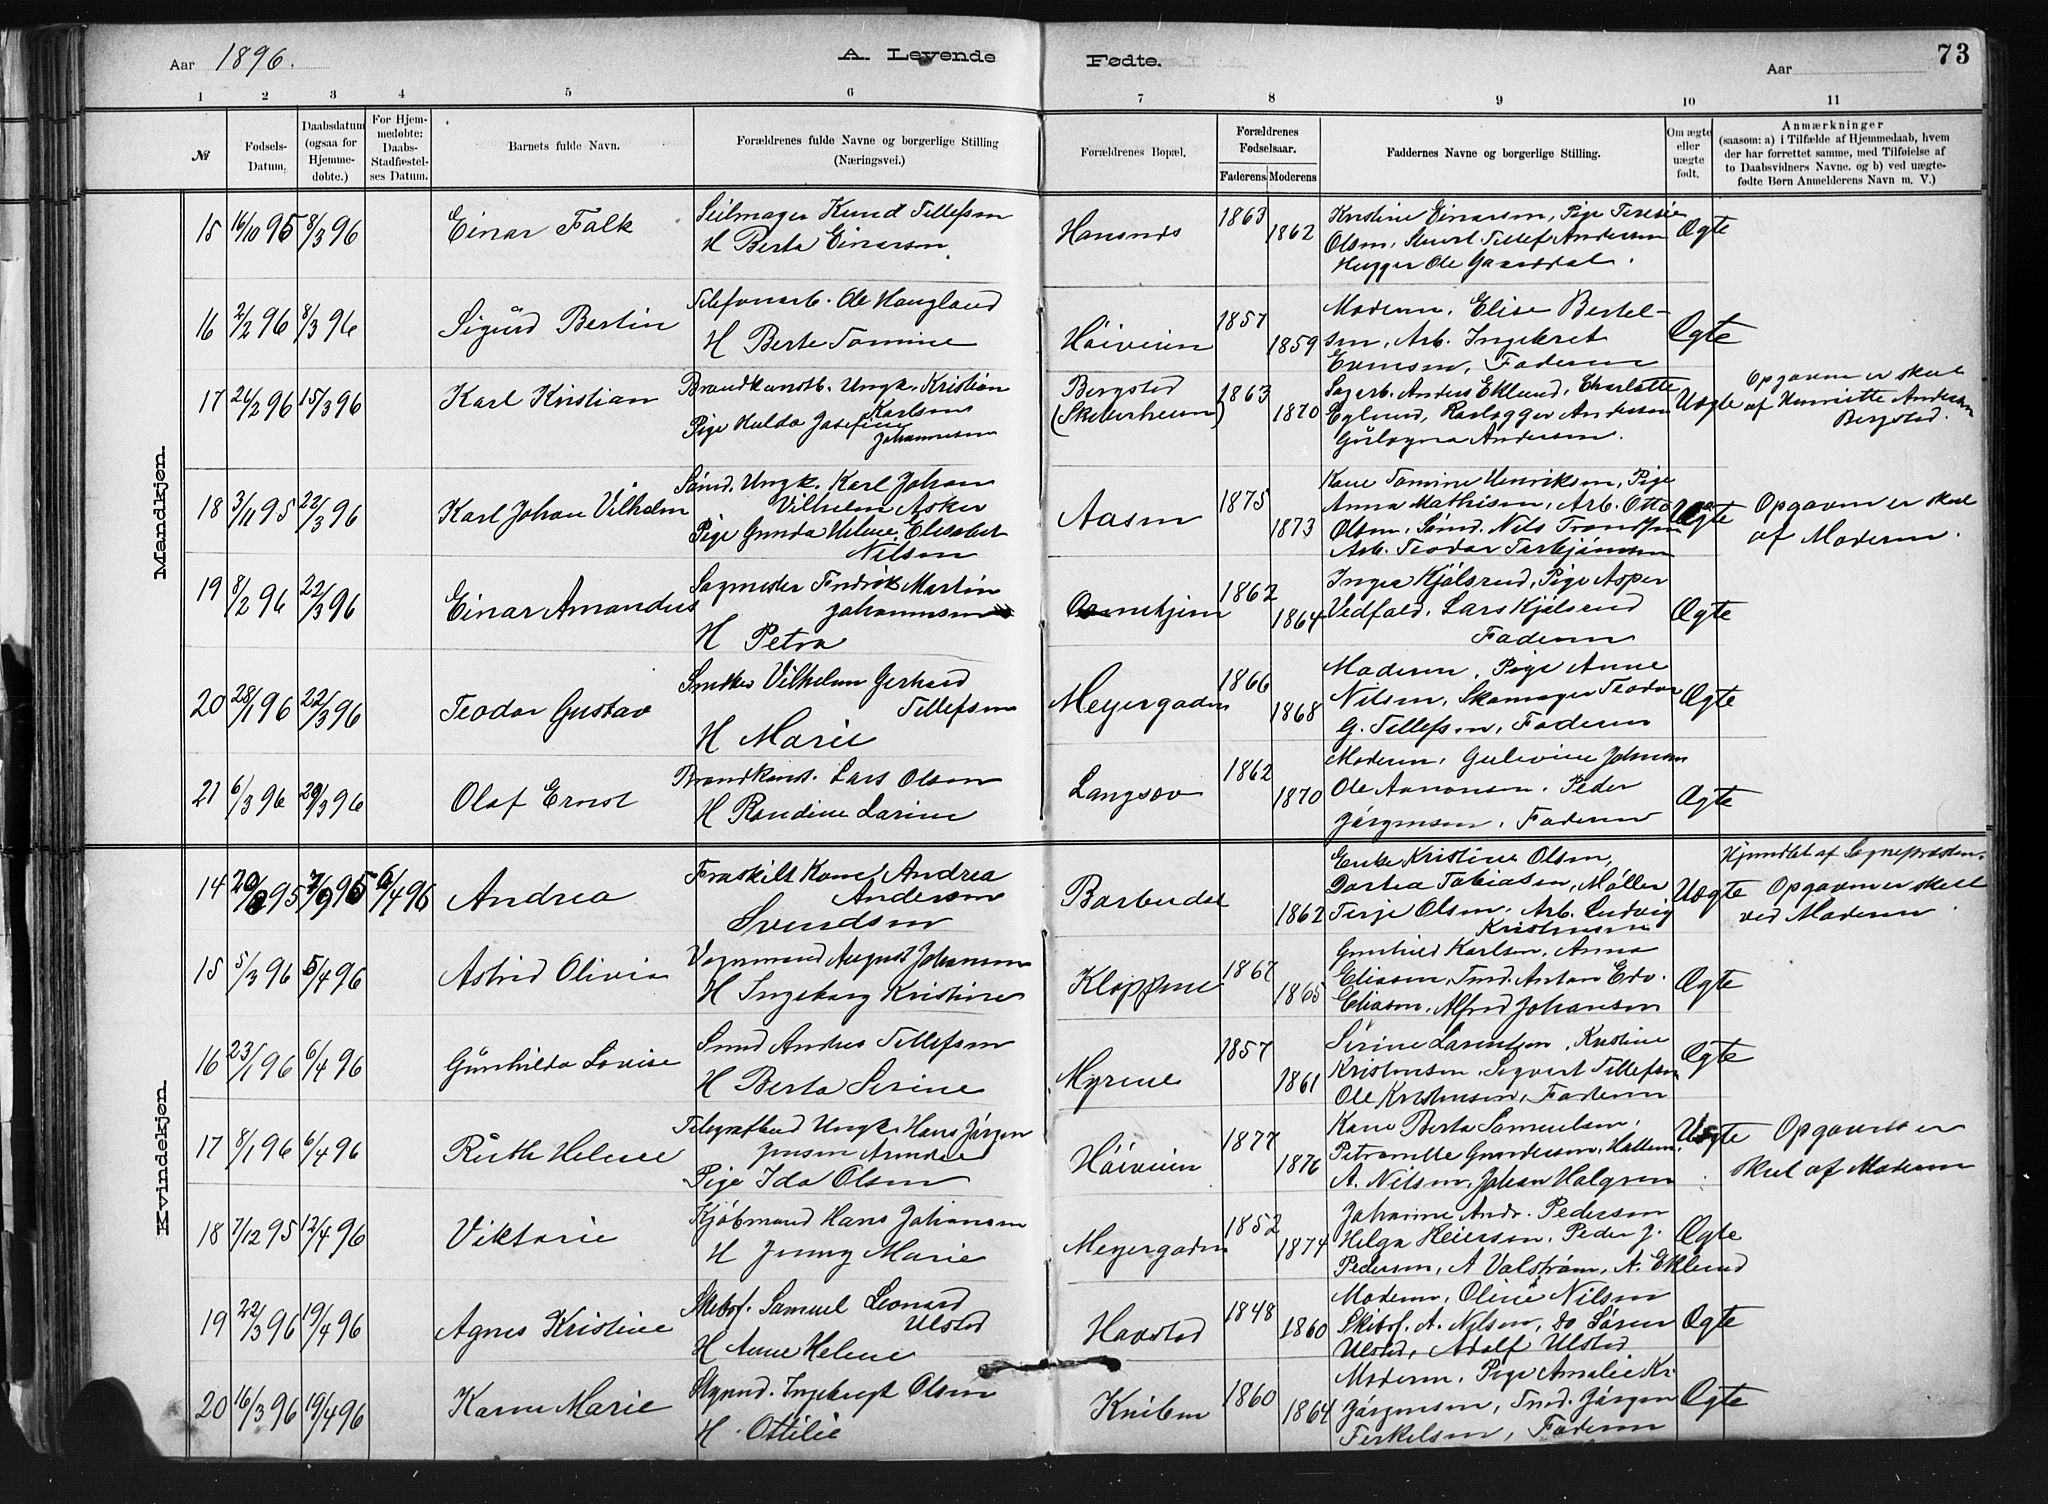 Aar 1896.
A. Levende
Fødte.
Aar
73
1 2 3 4 5 6 7 8 9 10 11
№
Fødsels-
Datum.
Daabsdatum
(ogsaa for
Hjemme-
døbte.)
For Hjem-
medøbte:
Daabs-
Stadfæstel-
ses Datum.
Barnets fulde Navn.
Forældrenes fulde Navne og borgerlige Stilling
(Næringsvei.)
Forældrenes Bopæl.
Forældrenes
Fødselsaar.
Faderens Moderens
Faddernes Navne og borgerlige Stilling.
Om ægte
eller
uægte
født.
Anmærkninger
(saasom: a) i Tilfælde af Hjemmedaab, hvem
der har forrettet samme, med Tilføielse af
to Daabsvidners Navne, og b) ved uægte-
fødte Børn Anmelderens Navn m. V.)
Mandkjøn.
15 16/10 95 8/3 96 Einar Falk
Seilmager Knud Tellefsen
H Berta Einarsen
1863
1862
Kristine Einarsen, Pige Teresie
Olsen, Stuert Tellef Andersen
Hugger Ole
Ægte
16 2/2 96 8/3 96 Sigurd Bertin
Telefonarb. Ole Haugland
H Berte Tomine
Høiveien
1857
1859
Moderen, Elise Bertel-
sen, Arb. Ingebret
Evensen, Faderen
Ægte
17 26/2 96 15/3 96 Karl Kristian
Brandkonstb. Ungk. Kristian
Karlsen
Pige Hulda Josefine
Johannesen
Bergsted
1863
1870
Sagarb. Anders Eklund, Charlotte
Eglund, Andersen
Andersen.
Uægte
Opgaven er skeet
af Henriette Andersen
Bergsted.
18 3/11 95 22/3 96 Karl Johan Vilhelm
Sømd. Ungk. Karl Johan
Vilhelm Asker
Pige Gunda Helene Elisabet
Nilsen
Aasen
1875
1873
Kone Tomine Henriksen, Pige
Anna Mathisen, Arb. Otto
Olsen, Sømd. Nils
Arb. Teodor
Opgaven er skeet
af Moderen.
19 8/2 96 22/3 96 Einar Amandus
Sagmester Fredrik Martin
Johannesen
H Petra
1862
1864
Inger Kjølsrud, Pige Asper
Vedfald, Lars Kjølsrud
Faderen
Ægte
20 28/1 96 22/3 96 Teodor Gustav
Snekker Vilhelm Gerhard
Tellefsen
H Marie
Meyergaden
1866
1868
Moderen, Pige Anne
Nilsen, Skomager Teodor
G. Tellefsen, Faderen
Ægte
21 6/3 96 29/3 96 Olaf Ernst
Brandkonst. Lars Olsen
H Randine Larine
Langsæv
1862
1870
Moderen, Gulevine Johnsen
Ole Aanonsen, Peder
Jørgensen, Faderen
Ægte
Kvindekjøn.
14 95 7/9 95 6/4 96 Andrea
Fraskilt Kone Andrea
Andersen
Svendsen
Barbudal
1862
Enke Kristine Olsen,
Dortea Tobiasen, Møller
Terje Olsen, Arb. Ludvig
Kristensen
Uægte
Hjemdøbt af Sognepresten.
Opgaven er skeet
ved Moderen
15 5/3 96 5/4 96 Astrid Olivia
Vognmand August Johansen
H Ingeborg Kristine
Kloppene
1867
1865
Gunhild Karlsen, Anna
Eliasen, Tmd. Anton Edv.
Eliasen, Alfred Johansen
Ægte
16 23/1 96 6/4 96 Gunhilda Lovise
Smed Andres Tellefsen
H Berta Serine
Myrene
1857
1861
Serine Larentsen, Kristine
Kristensen, Sigvart Tellefsen
Ole Kristensen, Faderen
Ægte
17 8/1 96 6/4 96 Ruth Helene
Telegrafbud Ungk. Hans Jørgen
Jensen
Pige Ida Olsen
Høiveien
1877
1876
Kone Berta Samuelsen,
Petronelle Gundersen,
A. Nilsen, Johan Halgren
Uægte
Opgaven er
skeet af Moderen
18 7/12 95 12/4 96 Viktorie
Kjøbmand Hans Johansen
H Jenny Marie
Meyergaden
1852
1874
Johanne Andr. Pedersen
Helga Reiersen, Peder J.
Pedersen, A Valstrøm, A. Eklund
Ægte
19 22/3 96 19/4 96 Agnes Kristine
Skibsf. Samuel Leonard
Ulsted
H Anne Helene
Havstad
1848
1860
Moderen, Oline Nilsen
Skibsf. A. Nilsen, Do Søren
Ulsted, Adolf Ulsted
Ægte
20 16/3 96 19/4 96 Karen Marie
Styrmd. Ingebregt Olsen
H. Ottilie
Kniben
1860
1864
Moderen, Pige Amalie Kr.
Jørgensen, Tmd. Jørgen
Terkelsen, Faderen
Ægte